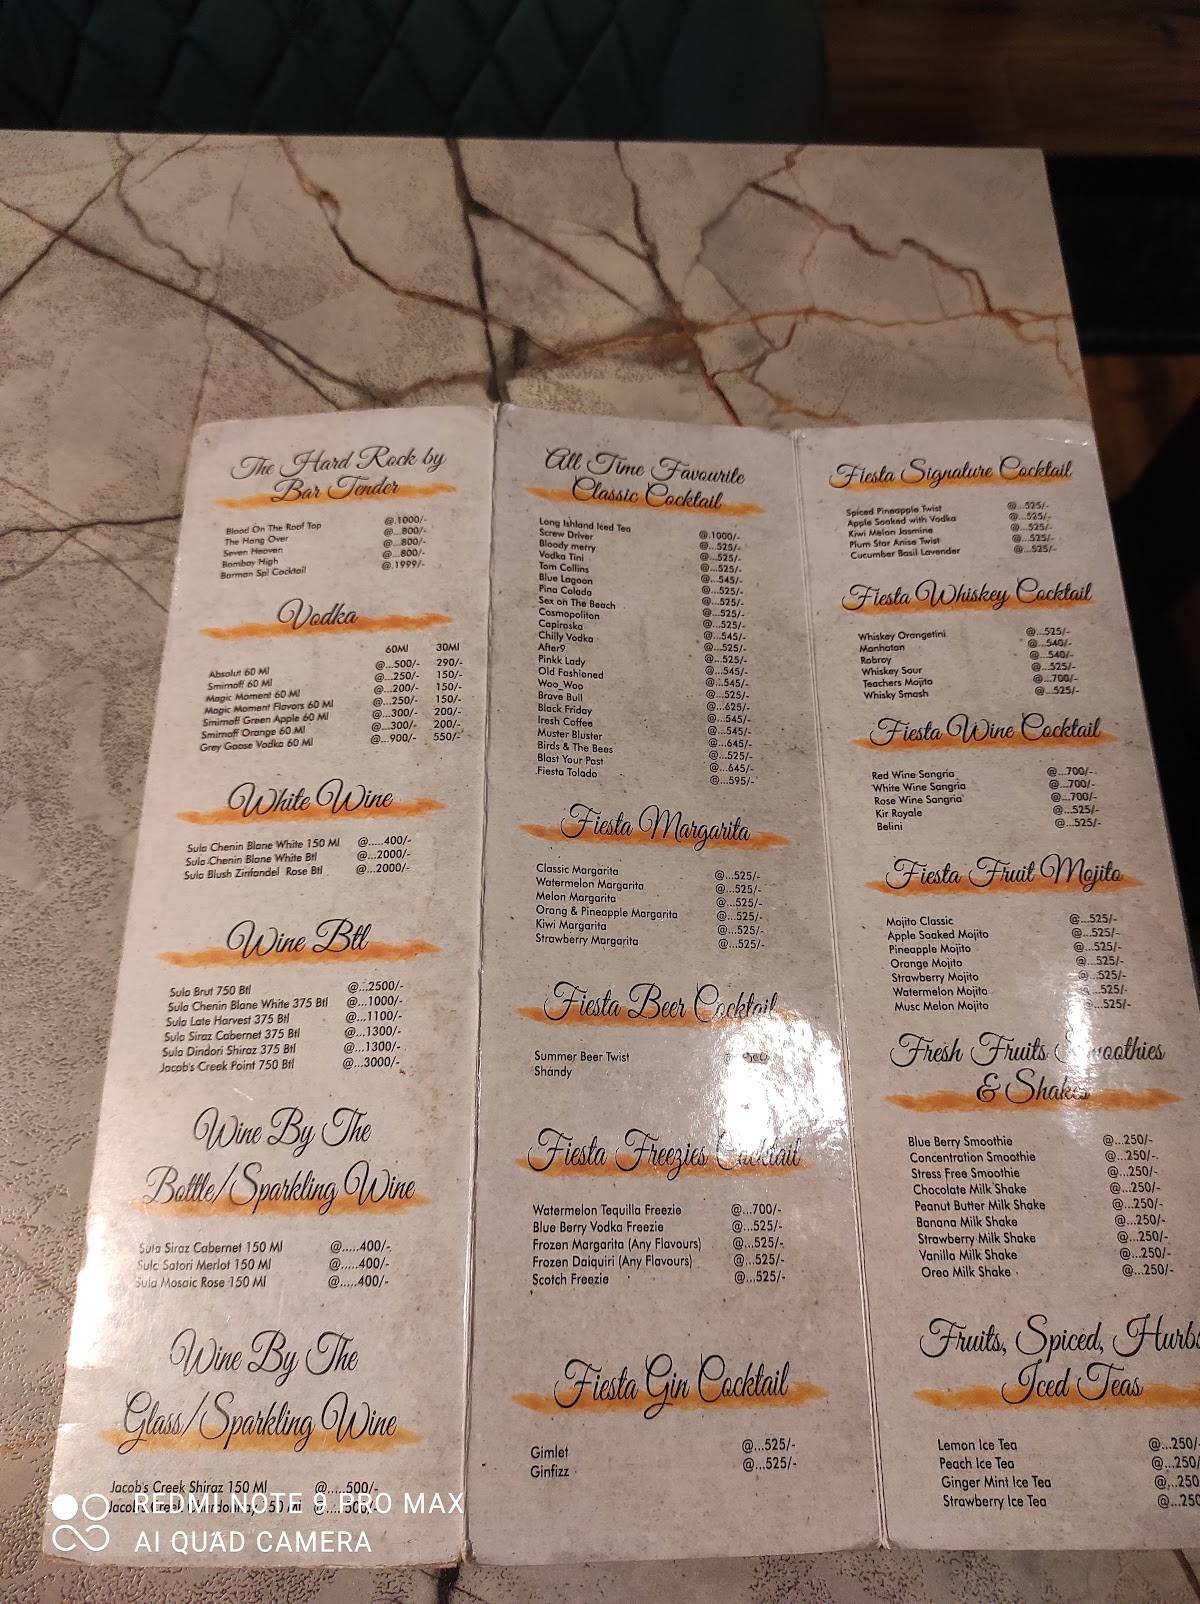 The Hard Rock by
Bar Tender
Blood On The Roof Top @.1000/-
The Hang Over @...800/-
Seven Heaven @...800/-
Bombay High @...800/-
Barman Spl Cocktail @.1999/-
Vodka
60Ml 30Ml
Absolut 60 Ml @...500/- 290/-
Smirnoff 60 Ml @...250/- 150/-
Magic Moment 60 Ml @...200/- 150/-
Magic Moment Flavors 60 Ml @...250/- 150/-
Smirnoff Green Apple 60 Ml @...300/- 200/-
Smirnoff Orange 60 Ml @...300/- 200/-
Grey Goose Vodka 60 Ml @...900/- 550/-
White Wine
Sula Chenin Blane White 150 Ml @.....400/-
Sula Chenin Blane White Btl @...2000/-
Sula Blush Zinfandel Rose Btl @...2000/-
Wine Btl
Sula Brut 750 Btl @...2500/-
Sula Chenin Blane White 375 Btl @...1000/-
Sula Late Harvest 375 Btl @...1100/-
Sula Siraz Cabernet 375 Btl @...1300/-
Sula Dindori Shiraz 375 Btl @...1300/-
Jacob's Creek Point 750 Btl @...3000/-
Wine By The
Bottle/Sparkling Wine
Sula Siraz Cabernet 150 Ml @.....400/-
Sula Satori Merlot 150 Ml @.....400/-
Sula Mosaic Rose 150 Ml @.....400/-
Wine By The
Glass/Sparkling Wine
Jacob's Creek Shiraz 150 Ml @.....500/-
Jacob's Creek 150 Ml @.....500/-
All Time Favourite
Classic Cocktail
Long Ishland Iced Tea @.1000/-
Screw Driver @...525/-
Bloody merry @...525/-
Vodka Tini @...525/-
Tom Collins @...545/-
Blue Lagoon @...525/-
Pina Colada @...525/-
Sex on The Beach @...525/-
Cosmopoliton @...545/-
Capiroska @...525/-
Chilly Vodka @...525/-
After9 @...545/-
Pinkk Lady @...545/-
Old Fashioned @...525/-
Woo_Woo @...625/-
Brave Bull @...545/-
Black Friday @...545/-
Iresh Coffee @...645/-
Muster Bluster @...525/-
Birds & The Bees @...645/-
Blast Your Past @...595/-
Fiesta Tolado
Fiesta Margarita
Classic Margarita @...525/-
Watermelon Margarita @...525/-
Melon Margarita @...525/-
Orang & Pineapple Margarita @...525/-
Kiwi Margarita @...525/-
Strawberry Margarita @...525/-
Fiesta Beer Cocktail
Summer Beer Twist
Shandy
Fiesta Freezies Cocktail
Watermelon Tequilla Freezie @...700/-
Blue Berry Vodka Freezie @...525/-
Frozen Margarita (Any Flavours) @...525/-
Frozen Daiquiri (Any Flavours) @...525/-
Scotch Freezie @...525/-
Fiesta Gin Cocktail
Gimlet @...525/-
Ginfizz @...525/-
Fiesta Signature Cocktail
Spiced Pineapple Twist @...525/-
Apple Soaked with Vodka @...525/-
Kiwi Melon Jasmine @...525/-
Plum Star Anise Twist @...525/-
Cucumber Basil Lavender @...525/-
Fiesta Whiskey Cocktail
Whiskey Orangetini @...525/-
Manhatan @...540/-
Robroy @...540/-
Whiskey Sour @...525/-
Teachers Mojito @...700/-
Whisky Smash @...525/-
Fiesta Wine Cocktail
Red Wine Sangria @...700/-
White Wine Sangria @...700/-
Rose Wine Sangria @...700/-
Kir Royale @...525/-
Belini @...525/-
Fiesta Fruit Mojito
Mojito Classic @...525/-
Apple Soaked Mojito @...525/-
Pineapple Mojito @...525/-
Orange Mojito @...525/-
Strawberry Mojito @...525/-
Watermelon Mojito @...525/-
Musc Melon Mojito @...525/-
Fresh Fruits Smoothies
& Shakes
Blue Berry Smoothie @...250/-
Concentration Smoothie @...250/-
Stress Free Smoothie @...250/-
Chocolate Milk Shake @...250/-
Peanut Butter Milk Shake @...250/-
Banana Milk Shake @...250/-
Strawberry Milk Shake @...250/-
Vanilla Milk Shake @...250/-
Oreo Milk Shake @...250/-
Fruits, Spiced, Hurbs
Iced Teas
Lemon Ice Tea @...250/-
Peach Ice Tea @...250/
Ginger Mint Ice Tea @...250
Strawberry Ice Tea @...250
REDMI NOTE 9 PRO MAX
AI QUAD CAMERA